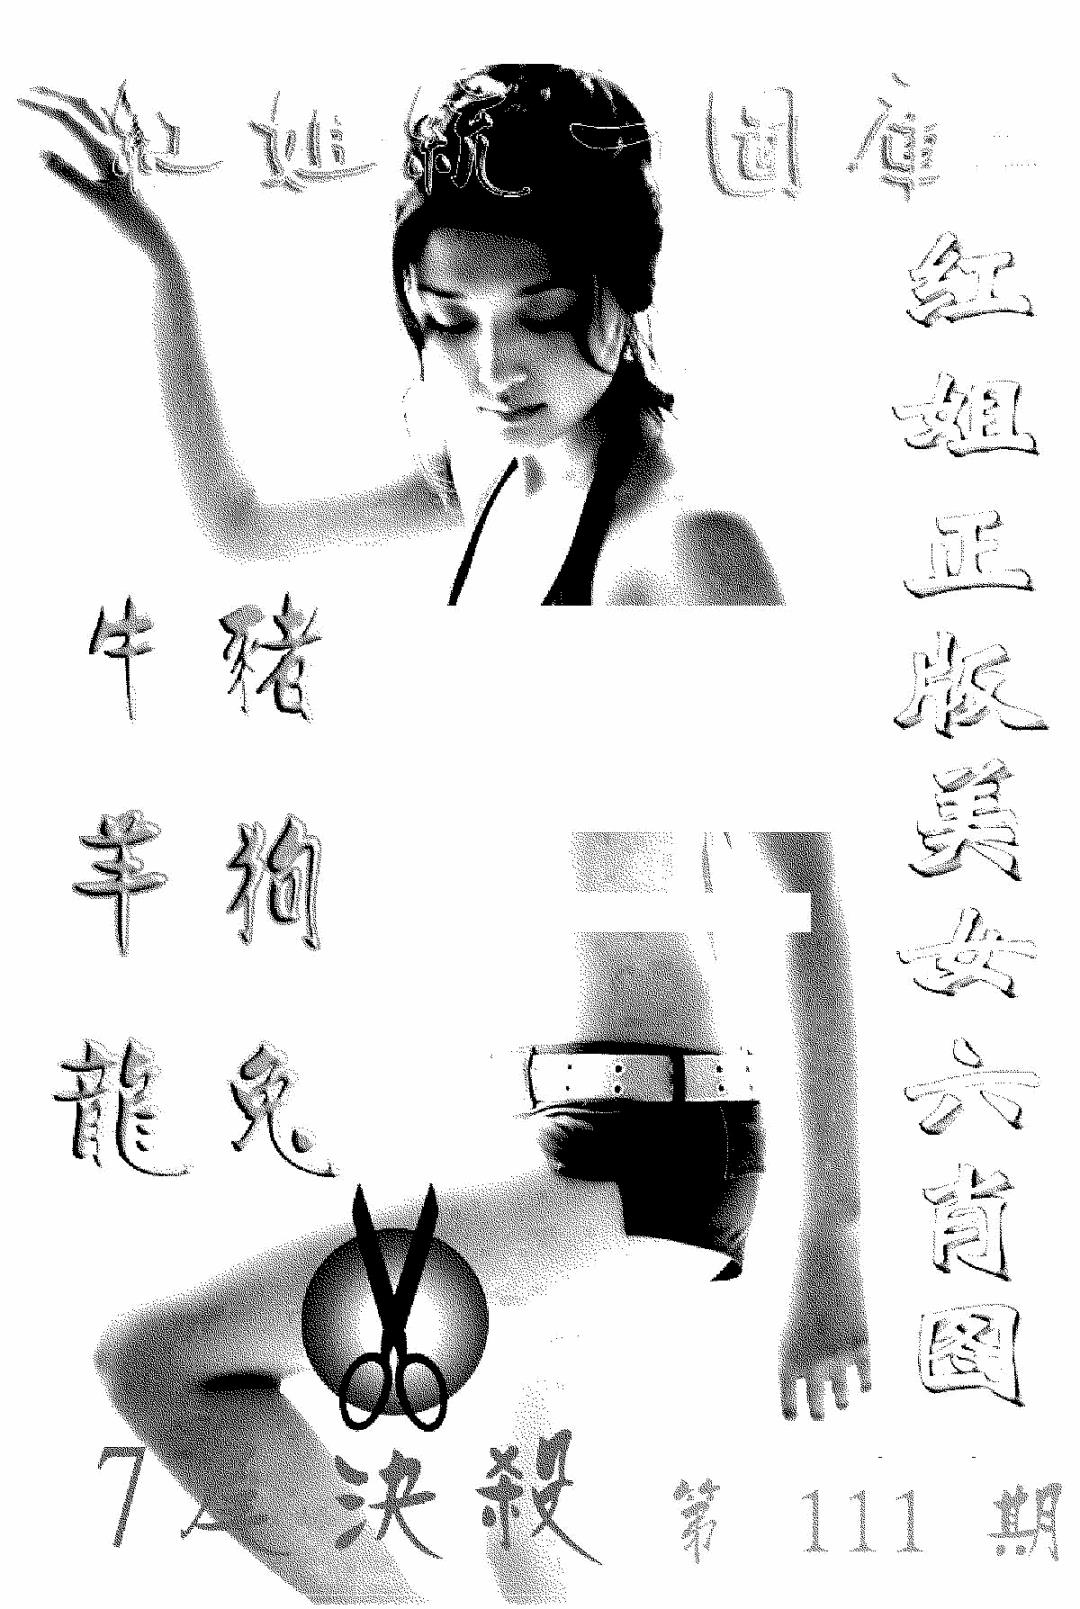 紅姐統一圖庫
紅姐正版美女六肖圖
牛 豬
羊 狗
龍 兔
決殺
第 111 期